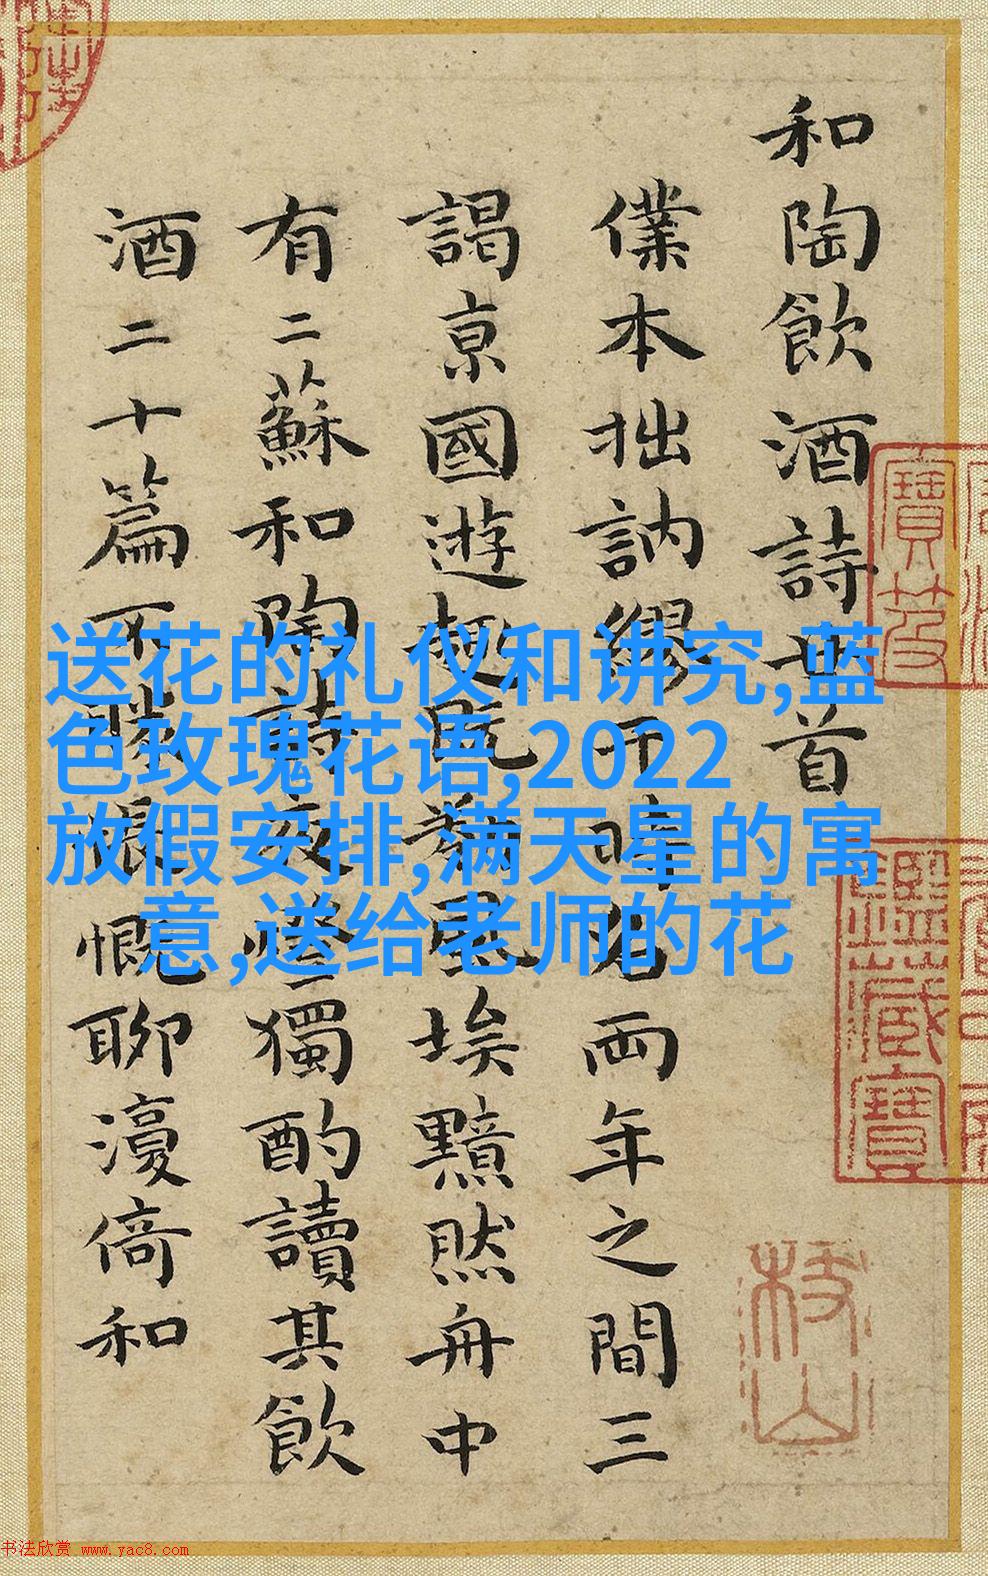 和陶飲酒詩廿首
僕本拙訥繆干時名両年之間三
謁京國遊趣既風埃黯然舟中
有二蘇和陶詩夜燈獨酌讀其飲
酒二十篇不勝悵慨聊濅倚和
送花的礼仪和讲究,蓝
色玫瑰花语,2022
放假安排,满天星的寓
意,送给老师的花
寶笈
鑑藏寶
枝山
书法欣赏 www.yac8.com